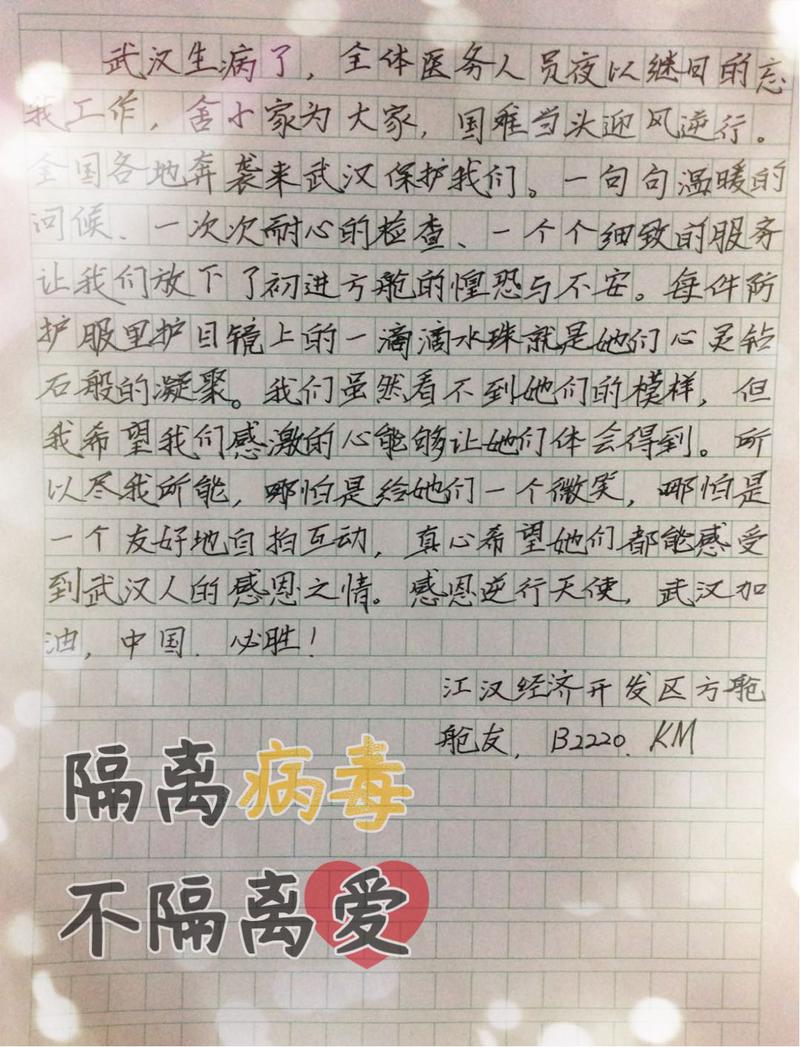 武汉生病了，全体医务人员夜以继日的忘
我工作，舍小家为大家，国难当头迎风逆行。
全国各地奔袭来武汉保护我们。一句句温暖的
问候、一次次耐心的检查、一个个细致的服务
让我们放下了初进方舱的惶恐与不安。每件防
护服里护目镜上的一滴滴水珠就是她们心灵钻
石般的凝聚。我们虽然看不到她们的模样，但
我希望我们感激的心能够让她们体会得到。所
以尽我所能，哪怕是给她们一个微笑，哪怕是
一个友好地自拍互动，真心希望她们都能感受
到武汉人的感恩之情。感恩逆行天使，武汉加
油，中国．必胜！
江汉经济开发区方舱
舱友，B2220．KM
隔离病毒
不隔离爱